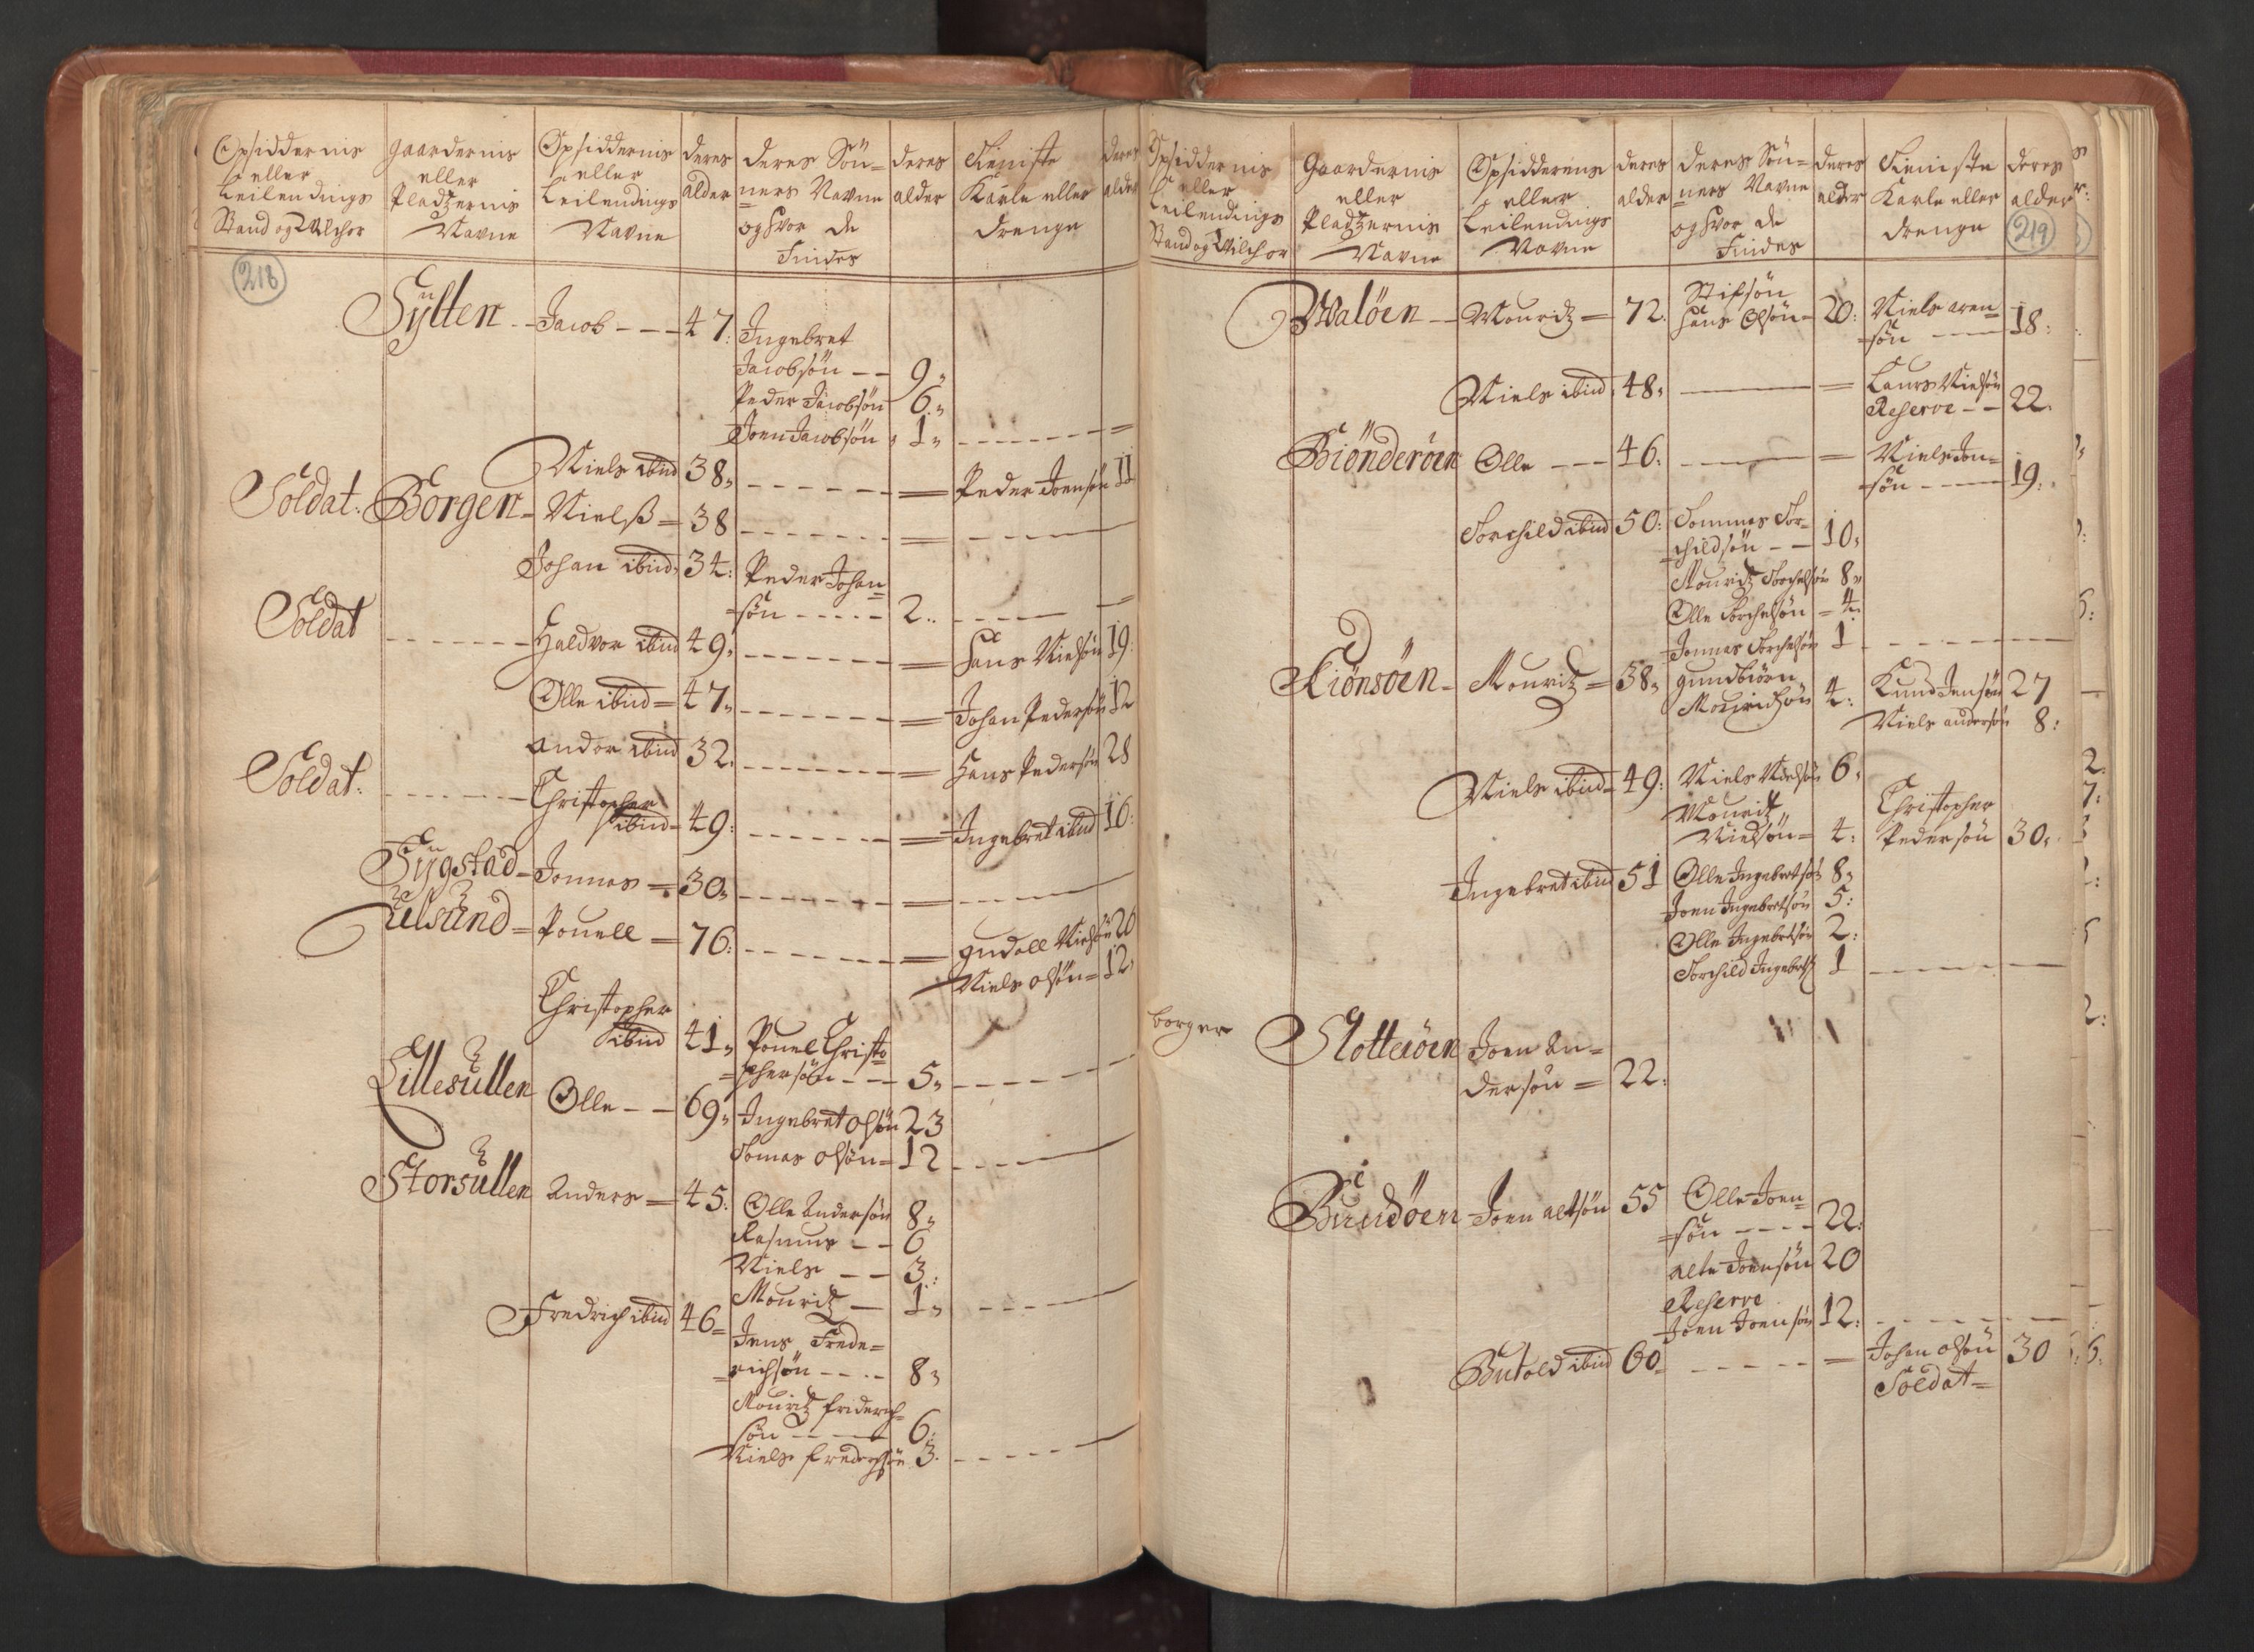 Opsiddernis eller Leilendings Stand og Vilchor
Gaardernis eller Pladtzernis Navne
Opsiddernis eller Leilendings Navne
deres alder
deres Sönners Navne og hvor de Findes
deres alder
Tieniste Karle eller drenge
deres alder
218
Sylten - Jacob - - - 47:
Ingebret
Jacobsön - - 9,
Peder Jacobsön 6,
Joen Jacobsön 1,
Niels ibid 38, Peder Joensön 11
Soldat: Borgen - Nielss = 38
Johan ibid 34: Peder Johan=
=sön - - - - - 2..
Soldat Haldvor ibid 49, Hans Nielsön 19:
Olle ibid = 47, Johan Pedersön 12
Andor ibid 32. Hans Pedersön 28
Soldat: Christopher
ibid = 49: Ingebret ibid 16:
Sygstad - Jonnas = 30,
Ulsund = Pouell = 76: Gudall Nielsön 20
Niels Olsön = 12,
Christopher
ibid 41, Pouel Christo
=phersön - - 5,
Lillesullen Olle - - 69, Ingebret Olsön 23
Tomas Olsön = 12
Storsullen Anders = 45: Olle Andersön 8,
Rasmus - - 6
Niels - - 3:
Mouritz - 1,
Fredrich ibid 46= Jens Frede=
=richsön - - - 8,
Mouritz friderich=
sön - - - - 6:
Niels fredrichsön 3.
Opsiddernis eller Leilendings Stand og Vilchor
Gaardernis eller Pladtzernis Navne
Opsiddernis eller Leilendings Navne
deres alder
deres Sön=ners Navne og hvor de Findes
deres alder
Tieniste Karle eller drenge
deres alder
219
Waløen - Mouritz = 72. Stifsön
Hans Olsön = 20: Niels Aren=
=sön - - - 18:
Niels ibid 48, Laurs Nielsön
Reserve - - 22.
Biönderöen Olle - - - 46: Niels Jon=
=sön - - - - 19:
Torchild ibid 50: Tommes Tor=
=childsön - - 10,
Mouritz Torchelsön 8,
Olle Torchelsön = 4:
Jonnas Torchelsön 1
Kiönsöen - Mouritz = 38, Gundbiörn
Mouridsön 4: Knud Jensön 27
Niels andersön 8:
Niels ibid = 49: Niels Nielsön 6,
Mouritz
Nielsön = 4: Christopher
Pedersön 30,
Ingebret ibid 51 Olle Ingebretsön 8,
Joen Ingebretsön 5:
Olle Ingebretsön 2:
Torchild Ingebrets 1
borger Slotteröen Joen An=
dersön = 22:
Buudöen - Joen Altsön 55 Olle Joen=
=sön - - - - 22:
Alte Joensön 20
Reserve
Joen Joensön 12:
Butold ibid 60, Johan Olsön 30
Soldat=